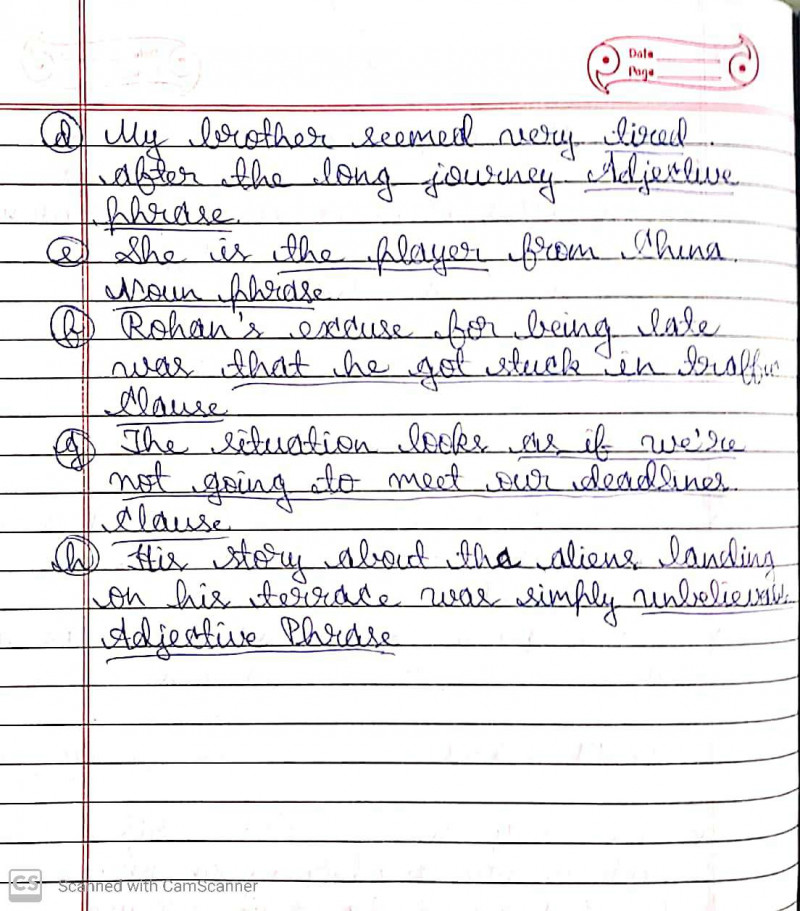 Date
Page
(d) My brother seemed very tired.
after the long journey Adjective
phrase.
(e) She is the player from China.
Noun phrase
(f) Rohan's excuse for being late
was that he got stuck in traffic
Clause
(g) The situation looks as if we're
not going to meet our deadlines.
Clause
(h) His story about the aliens landing
on his terrace was simply unbelievable
Adjective Phrase
CS Scanned with CamScanner